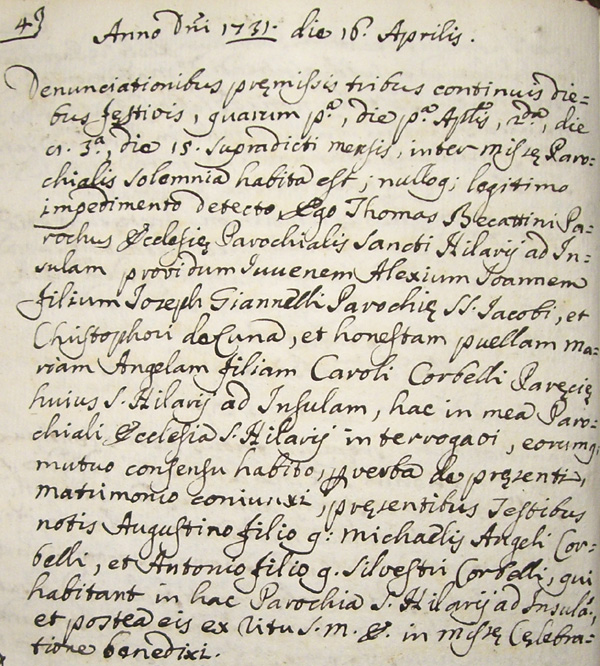 43
Anno Dñi 1731. die 16. Aprilis.
Denunciationibus pręmissis tribus continuis die=
bus festivis, quarum pª, die pª Aplis, 2dª, die
3ª, die 15. supradicti mensis, inter missę Paro=
chialis solemnia habita est, nulloq; legitimo
impedimento detecto, Ego Thomas Becattini Pa=
rochus Ecclesię Parochialis Sancti Hilarij ad In=
sulam providum Iuvenem Alexium Ioannem
filium Ioseph Giannelli Parochię SS. Iacobi, et
Christophori de Cuna, et honestam puellam Ma=
riam Angelam filiam Caroli Corbelli Paręcię
huius S. Hilarij ad Insulam, hac in mea Paro=
chiali Ecclesia S. Hilarij interrogavi, eorumq;
mutuo consensu habito, p verba de pręsenti,
matrimonio coniunxi, pręsentibus Testibus
notis Augustino filio q: Michaelis Angeli Cor=
belli, et Antonio filio q. Silvestri Corbelli, qui
habitant in hac Parochia S. Hilarij ad Insulã,
et postea eis ex Ritu S. M. E. in missę Cęlebra=
tione benedixi.